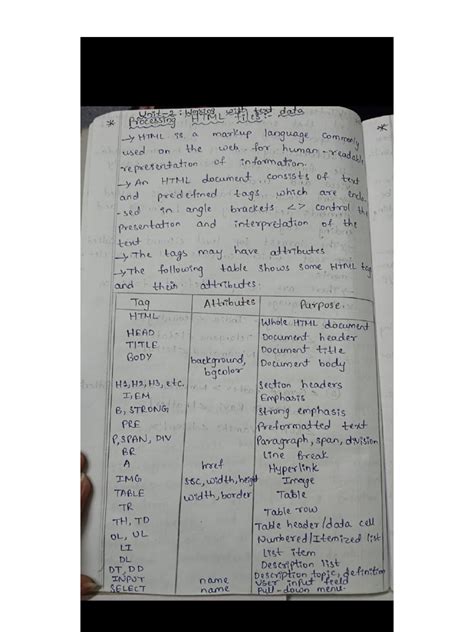 Unit-2: Working with text data
* Processing HTML files:
→ HTML is a markup language commonly
used on the web for human-readable
representation of information.
→ An HTML document consists of text
and predefined tags which are enclo
-sed in angle brackets <> control the
presentation and interpretation of the
text
→ The tags may have attributes
→ The following table shows some HTML tags
and their attributes.
Tag Attributes Purpose.
HTML Whole HTML document
HEAD Document header
TITLE Document title
BODY background, bgcolor Document body
H1, H2, H3, etc. Section headers
I, EM Emphasis
B, STRONG Strong emphasis
PRE Preformatted text
P, SPAN, DIV Paragraph, span, division
BR Line Break
A href Hyperlink
IMG src, width, height Image
TABLE width, border Table
TR Table row
TH, TD Table header/data cell
OL, UL Numbered/Itemized list
LI List item
DL Description list
DT, DD Description topic, definition
INPUT name User input field
SELECT name Pull-down menu.
*